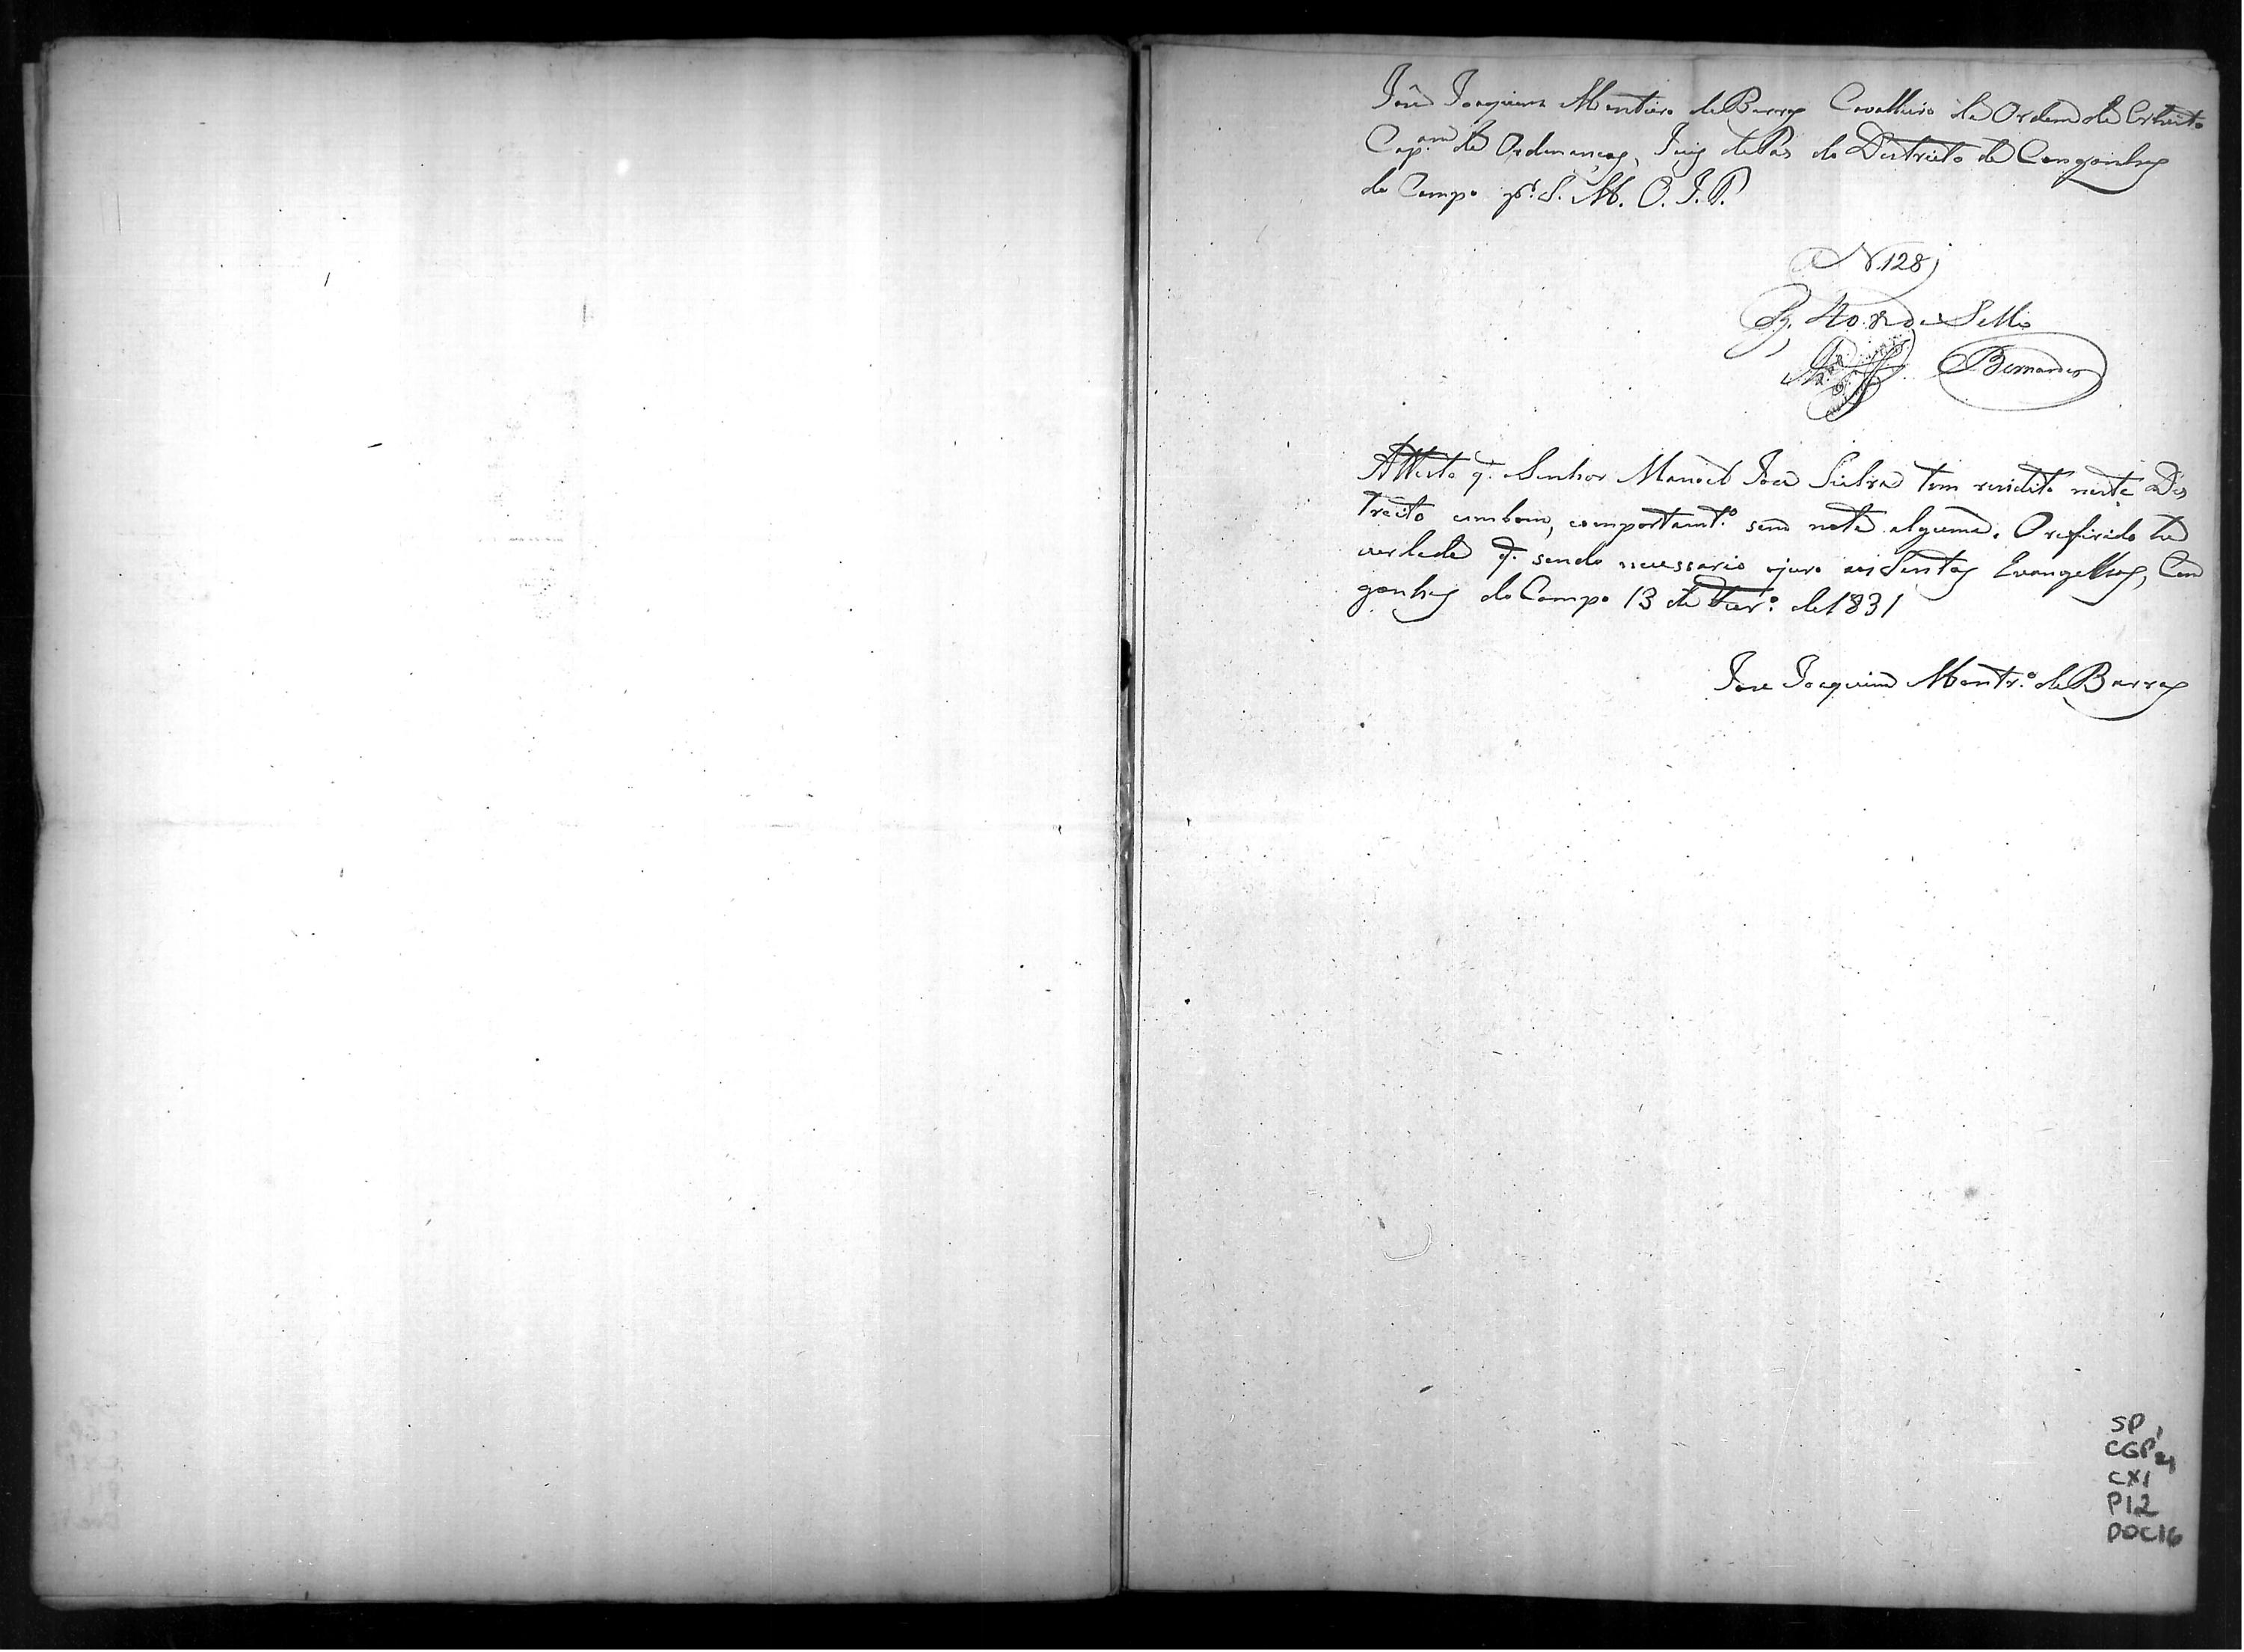 José Joaquim Monteiro de Barros Cavalheiro da Ordem de Christo
Cap.am de Ordenanças, Juiz de Paz do Destricto de Congonhas
do Campo p.r S. M. O. I. P.
N. 128
P. 40 r.s de Sello
Bernardes
Attesto q. Senhor Manoel José Silva tem rezidito neste Des
treito com bom, comportamt.o sem nota alguma. O referido he
verdade q. sendo necessario ojuro aos Santos Evangelhos, Con
gonhas do Campo 13 de Fever.o de 1831
Jose Joaquim Montr.o de Barros
SP 1
CGP 21
CX1
P12
DOC16